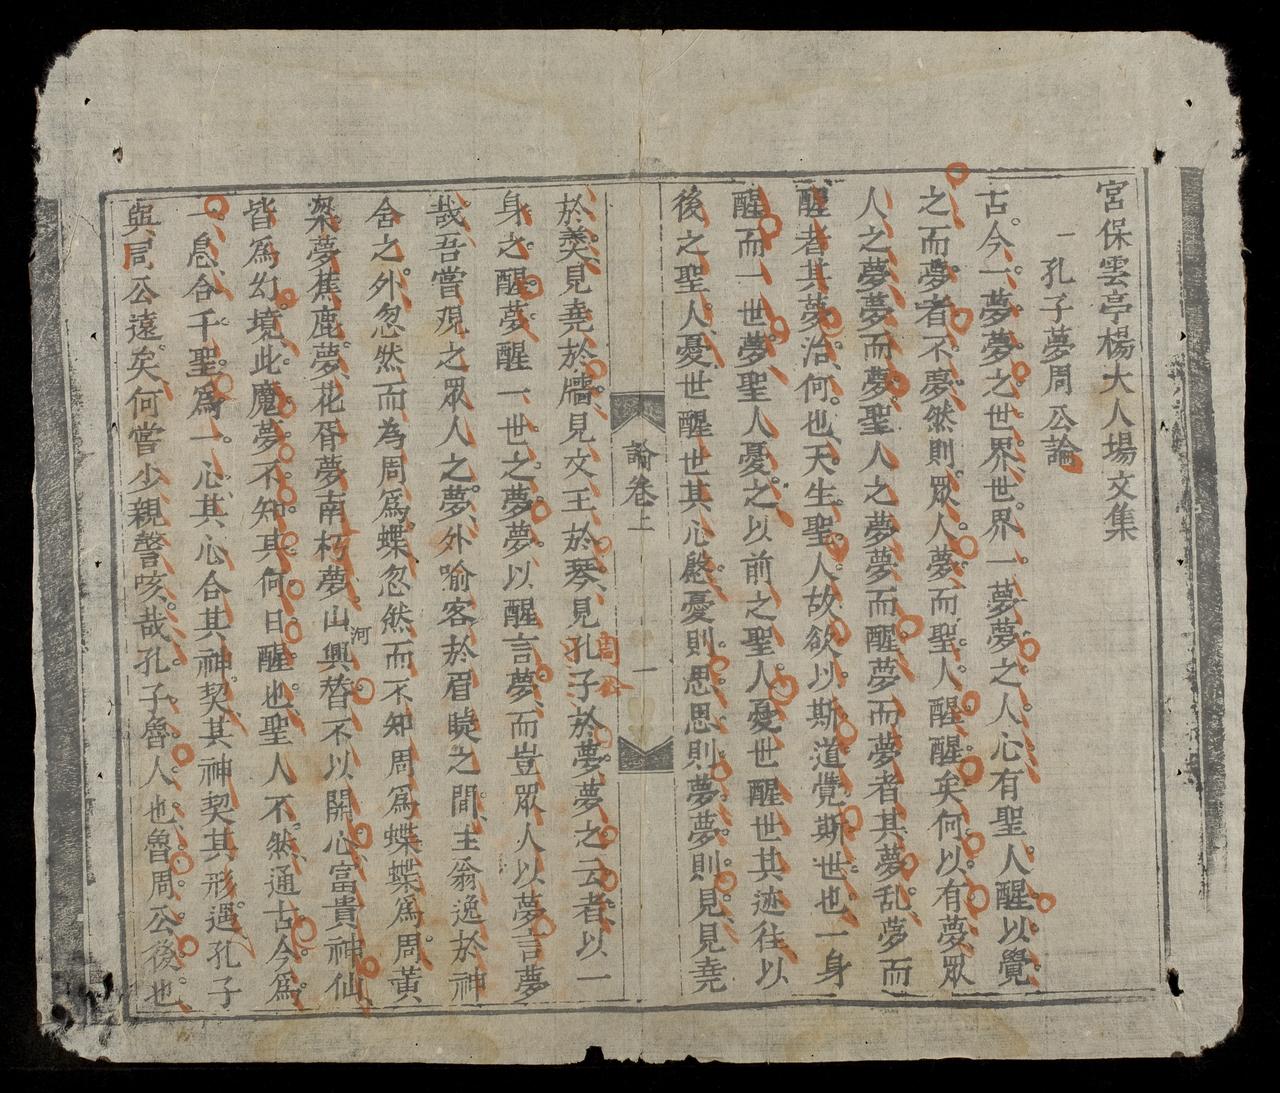 宮保雲亭楊大人場文集
一孔子夢周公論
古今一夢夢之世界世界一夢夢之人心有聖人醒以覺
之而夢者不夢然則眾人夢而聖人醒醒矣何以有夢眾
人之夢夢而夢聖人之夢夢而醒夢而夢者其夢乱夢而
醒者其夢治何也天生聖人故欲以斯道覺斯世也一身
醒而一世夢聖人憂之以前之聖人憂世醒世其迹往以
後之聖人憂世醒世其心慇憂則思思則夢夢則見見堯
論卷上
一
於羹見堯於牆見文王於琴見孔子於夢夢之云者以一
周公
身之醒夢醒一世之夢夢以醒言夢而豈眾人以夢言夢
哉吾嘗現之眾人之夢外喻客於眉睫之間主翁逸於神
舍之外忽然而為周爲蝶忽然而不知周爲蝶蝶爲周黃
粱夢蕉鹿夢花胥夢南柯夢山興替不以開心富貴神仙
河
皆爲幻境此魔夢不知其何日醒也聖人不然通古今爲
一息合千聖爲一心其心合其神契其神契其形遇孔子
與周公遠矣何嘗少親謦咳哉孔子魯人也魯周公後也